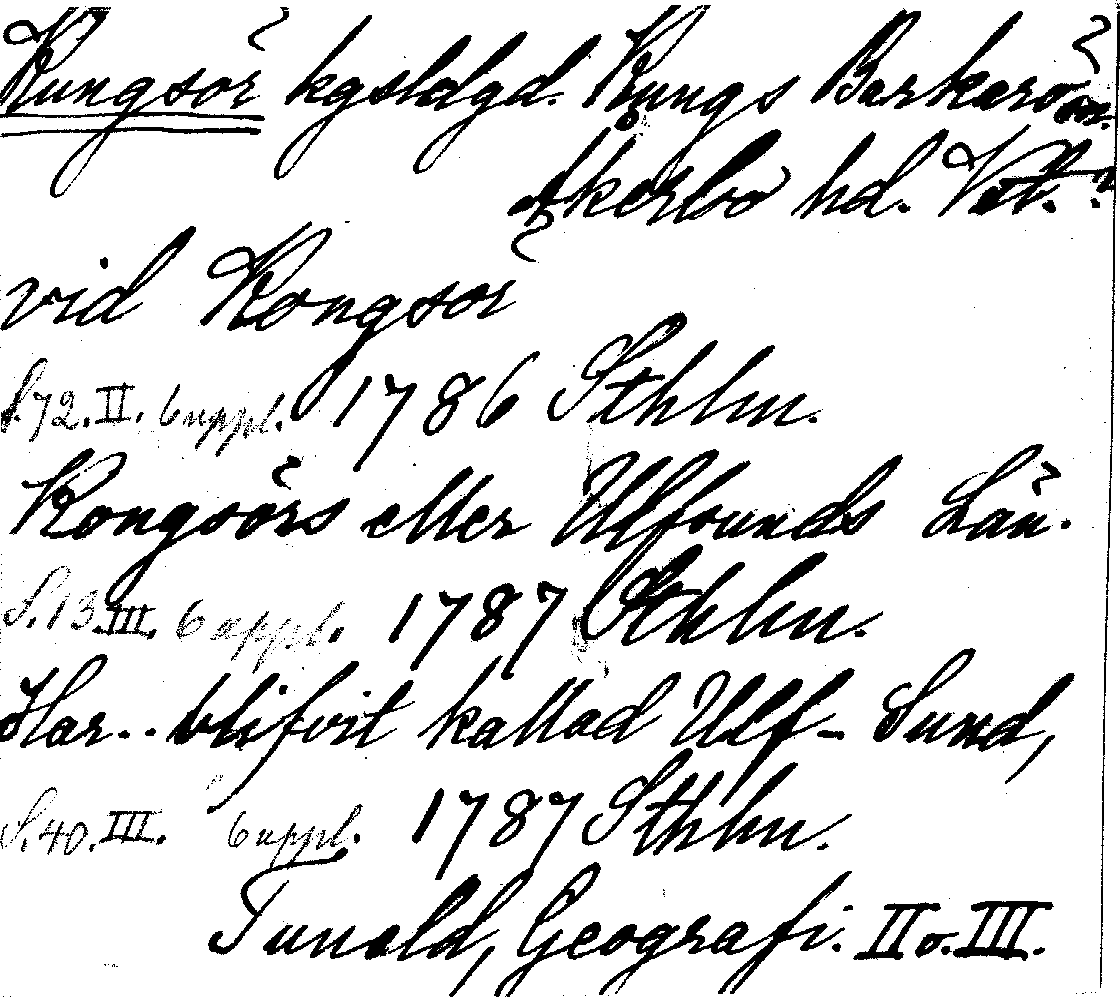 Kungsör kgsldgd. Kungs Barkarö sn.
Åkerbo hd. Vstl.?
vid Kongsör
S. 72. II. 6 uppl. 1786 Sthlm.
Kongsörs eller Ulfsunds Län.
S. 13. III. 6 uppl. 1787 Sthlm.
Har.. blifvit kallad Ulf-Sund,
S. 40. III. 6 uppl. 1787 Sthlm.
Tuneld, Geografi. II o. III.